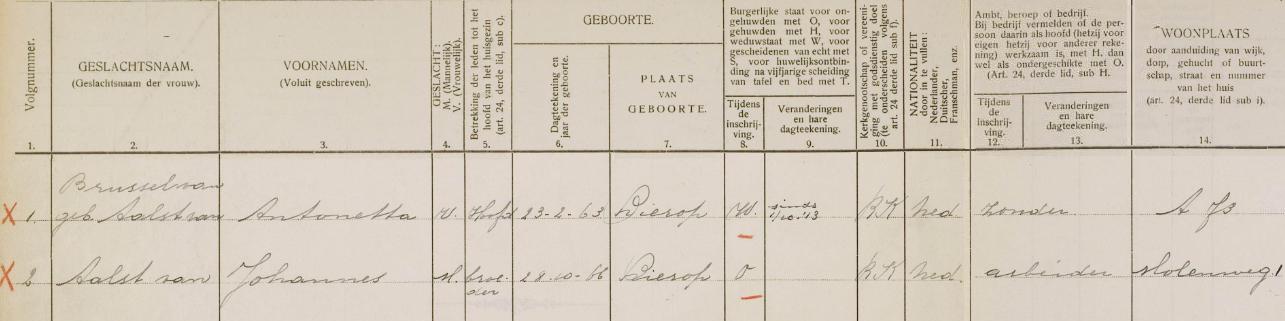 Volgnummer.
1.
GESLACHTSNAAM.
(Geslachtsnaam der vrouw).
2.
VOORNAMEN.
(Voluit geschreven).
3.
GESLACHT:
M. (Mannelijk).
V. (Vrouwelijk).
4.
Betrekking der leden tot het
hoofd van het huisgezin
(art. 24, derde lid, sub c).
5.
GEBOORTE.
Dagteekening en
jaar der geboorte.
6.
PLAATS
VAN
GEBOORTE.
7.
Burgerlijke staat voor on-
gehuwden met O, voor
gehuwden met H, voor
weduwstaat met W, voor
gescheidenen van echt met
S, voor huwelijksontbin-
ding na vijfjarige scheiding
van tafel en bed met T.
Tijdens
de
inschrij-
ving.
8.
Veranderingen
en hare
dagteekening.
9.
Kerkgenootschap of vereeni-
ging met godsdienstig doel
(te onderscheiden volgens
art. 24 derde lid, sub f).
10.
NATIONALITEIT
door in te vullen:
Nederlander,
Duitscher,
Franschman, enz.
11.
Ambt, beroep of bedrijf.
Bij bedrijf vermelden of de per-
soon daarin als hoofd (hetzij voor
eigen hetzij voor anderer reke-
ning) werkzaam is, met H. dan
wel als ondergeschikte met O.
(Art. 24, derde lid, sub H.
Tijdens
de
inschrij-
ving.
12.
Veranderingen
en hare
dagteekening.
13.
WOONPLAATS
door aanduiding van wijk,
dorp, gehucht of buurt-
schap, straat en nummer
van het huis
(art. 24, derde lid sub i).
14.
Brussel van
X 1 geb. Aalst van Antonetta V. Hoofd 23-2-63 Lierop W. sinds RK Ned zonder A
X 2 Aalst van Johannes M. broe- 28-10-66 Lierop O RK Ned. arbeider Molenweg 1
der